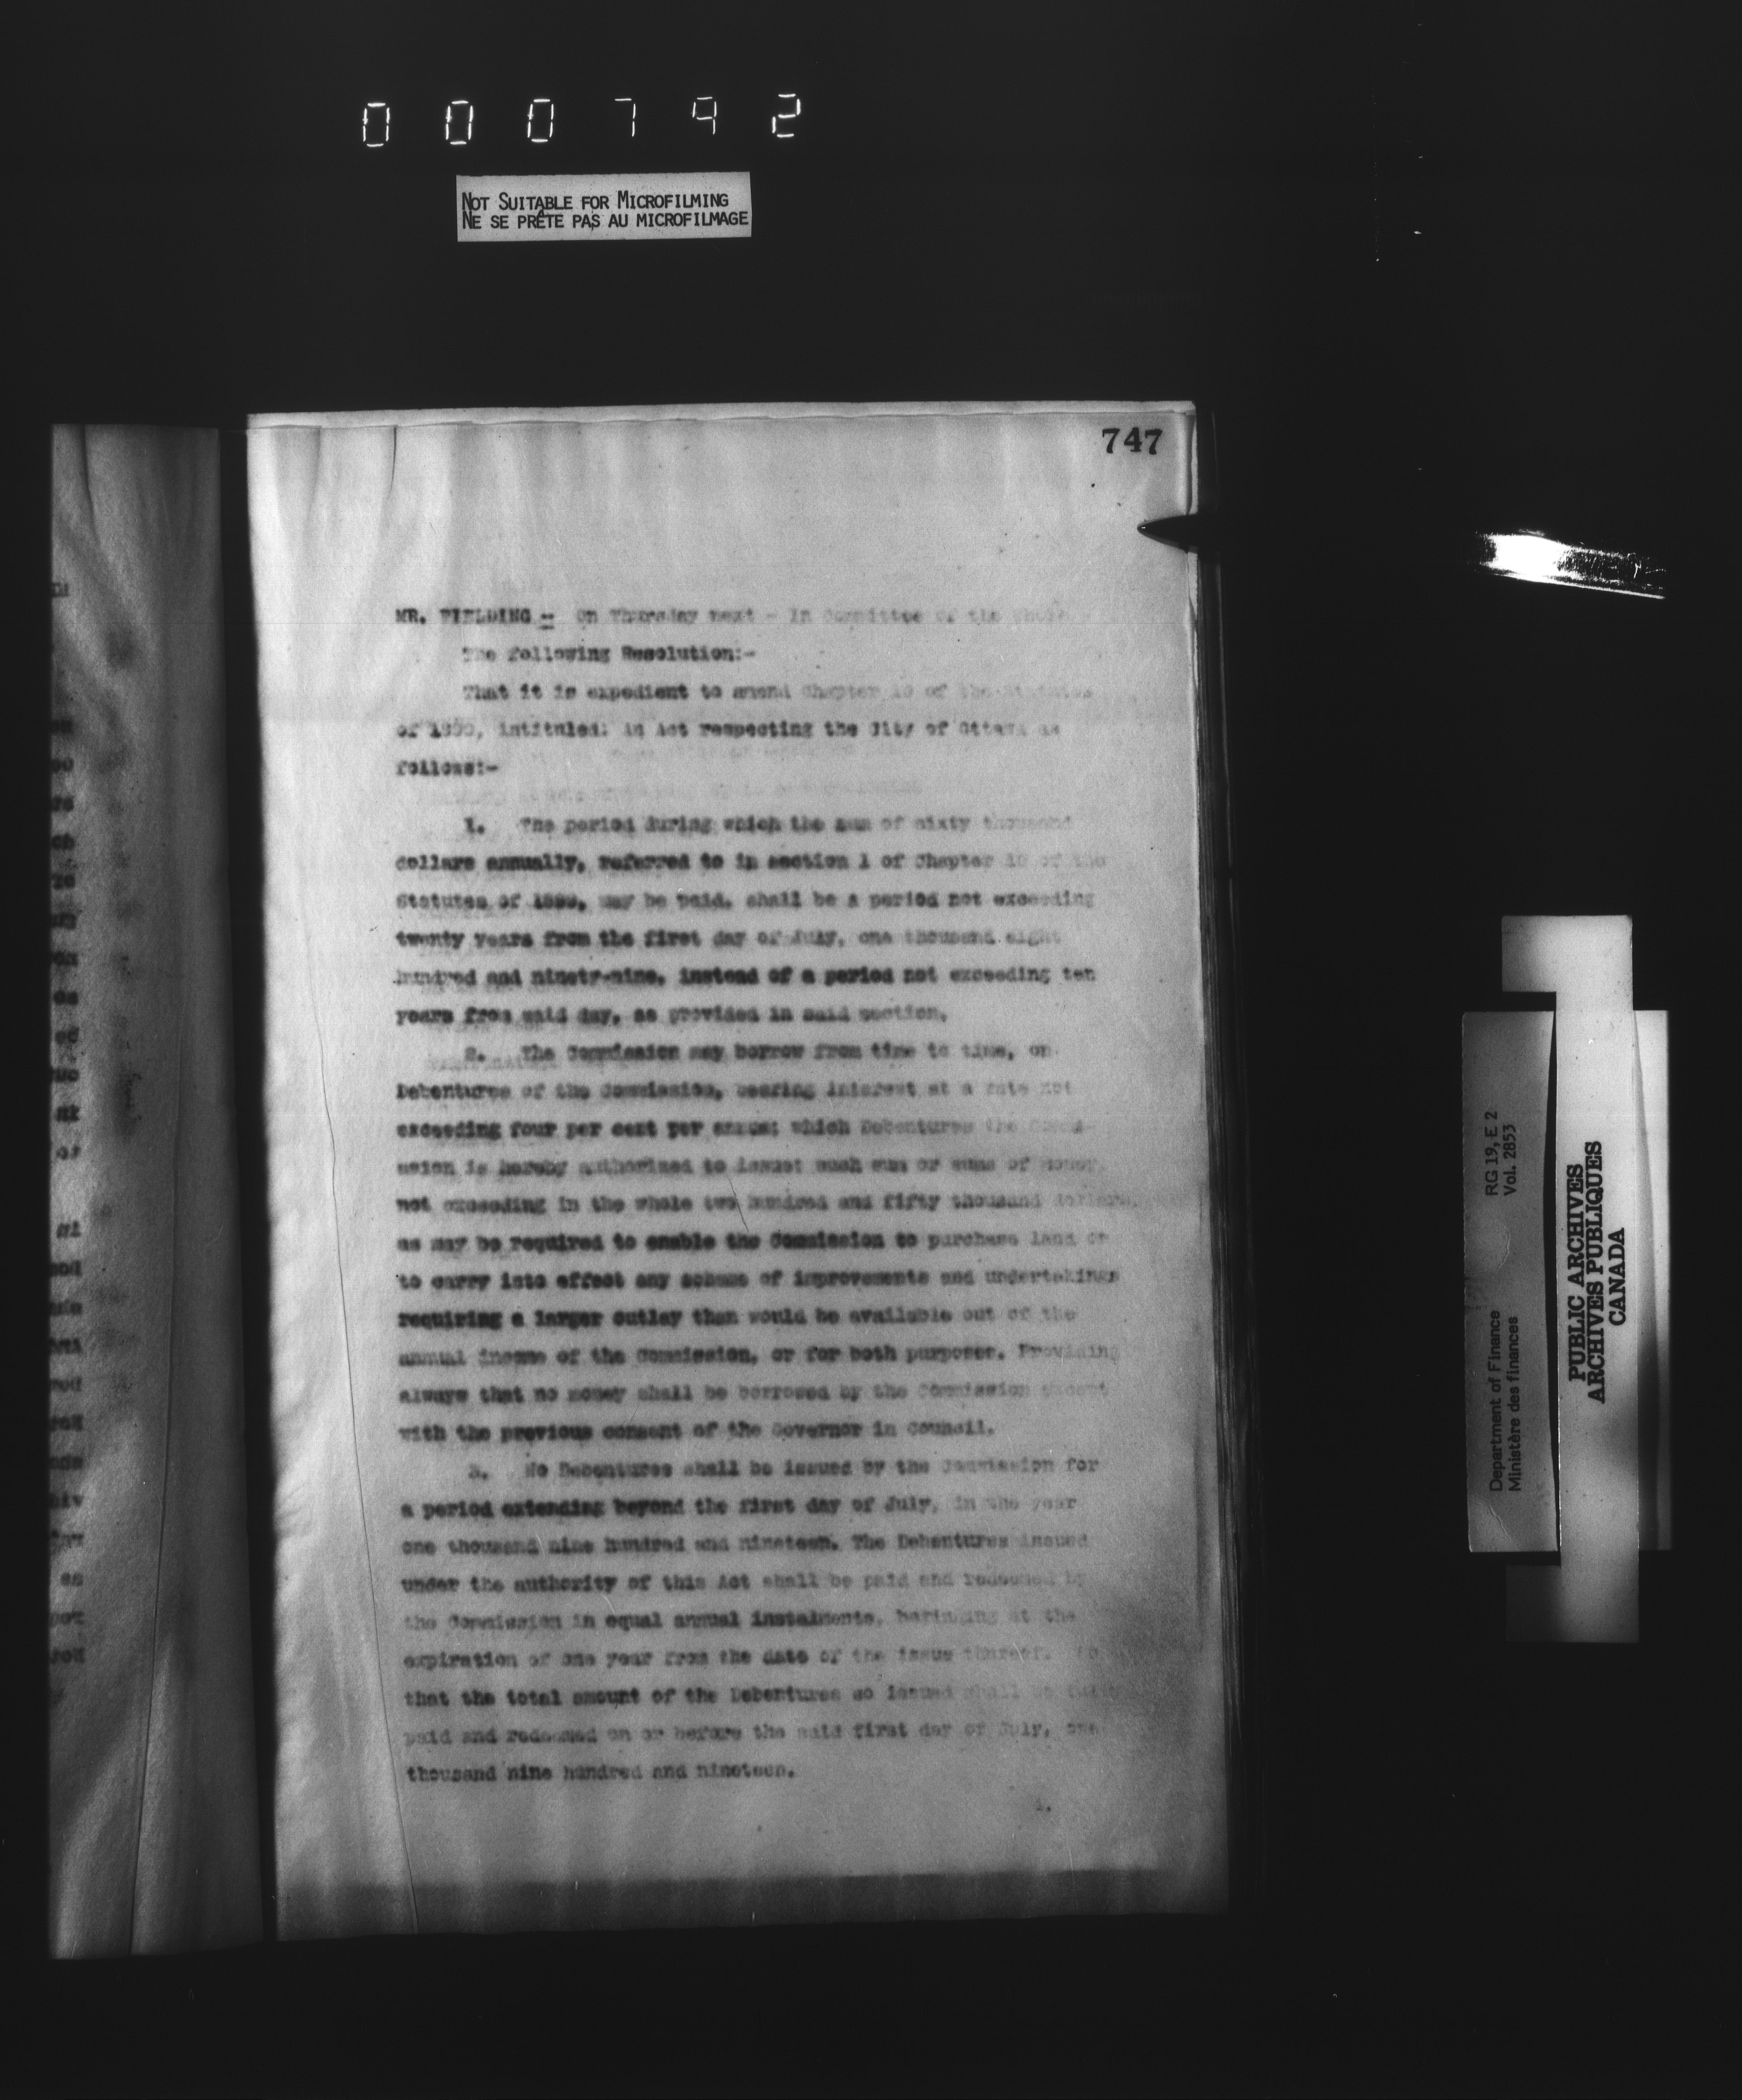 000792
NOT SUITABLE FOR MICROFILMING
NE SE PRÊTE PAS AU MICROFILMAGE
747
MR. FIELDING -- On Thursday next - In Committee of the Whole
The following Resolution:-
That it is expedient to amend Chapter 10 of the Statutes
of 1899, intituled: An Act respecting the City of Ottawa as
follows:-
1. The period during which the sum of sixty thousand
dollars annually, referred to in section 1 of Chapter 10 of the
Statutes of 1899, may be paid, shall be a period not exceeding
twenty years from the first day of July, one thousand eight
hundred and ninety-nine, instead of a period not exceeding ten
years from said day, as provided in said section.
2. The Commission may borrow from time to time, on
Debentures of the Commission, bearing interest at a rate not
exceeding four per cent per annum; which Debentures the Commi-
ssion is hereby authorized to issue; such sum or sums of money,
not exceeding in the whole two hundred and fifty thousand dollars,
as may be required to enable the Commission to purchase land or
to carry into effect any scheme of improvements and undertakings
requiring a larger outlay than would be available out of the
annual income of the Commission, or for both purposes. Providing
always that no money shall be borrowed by the Commission except
with the previous consent of the Governor in Council.
3. No Debentures shall be issued by the Commission for
a period extending beyond the first day of July, in the year
one thousand nine hundred and nineteen. The Debentures issued
under the authority of this Act shall be paid and redeemed by
the Commission in equal annual instalments, beginning at the
expiration of one year from the date of the issue thereof. So
that the total amount of the Debentures so issued shall be
paid and redeemed on or before the said first day of July, one
thousand nine hundred and nineteen.
Department of Finance RG 19, E 2
Ministère des finances Vol. 2853
PUBLIC ARCHIVES
ARCHIVES PUBLIQUES
CANADA